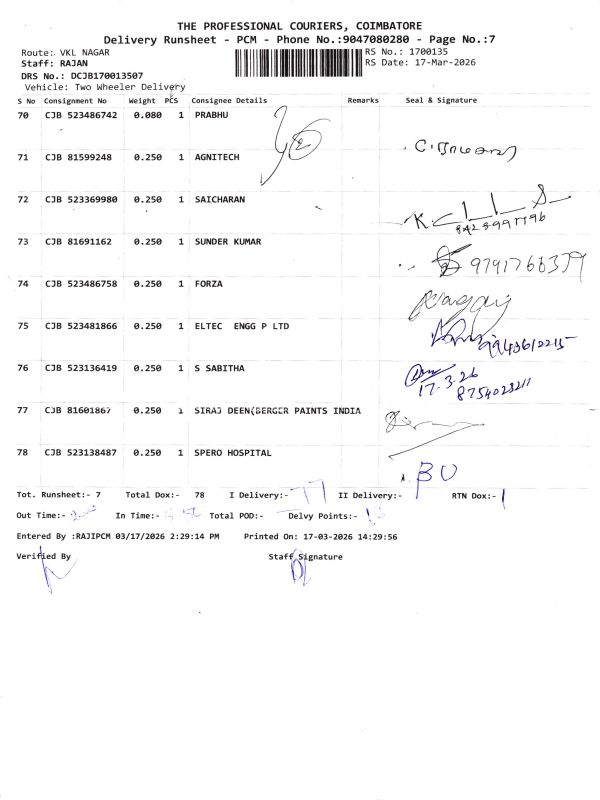 THE PROFESSIONAL COURIERS, COIMBATORE
Delivery Runsheet - PCM - Phone No.:9047080280 - Page No.:7
Route: VKL NAGAR RS No.: 1700135
Staff: RAJAN RS Date: 17-Mar-2026
DRS No.: DCJB170013507
Vehicle: Two Wheeler Delivery
S No Consignment No Weight PCS Consignee Details Remarks Seal & Signature
70 CJB 523486742 0.080 1 PRABHU
71 CJB 81599248 0.250 1 AGNITECH
72 CJB 523369980 0.250 1 SAICHARAN
8428997796
73 CJB 81691162 0.250 1 SUNDER KUMAR
74 CJB 523486758 0.250 1 FORZA
75 CJB 523481866 0.250 1 ELTEC ENGG P LTD
76 CJB 523136419 0.250 1 S SABITHA
17.3.26
77 CJB 81601867 0.250 1 SIRAJ DEEN(BERGER PAINTS INDIA
78 CJB 523138487 0.250 1 SPERO HOSPITAL
BU
Tot. Runsheet:- 7 Total Dox:- 78 I Delivery:- 77 II Delivery:- RTN Dox:- 1
Out Time:- In Time:- Total POD:- Delvy Points:-
Entered By :RAJIPCM 03/17/2026 2:29:14 PM Printed On: 17-03-2026 14:29:56
Verified By Staff Signature